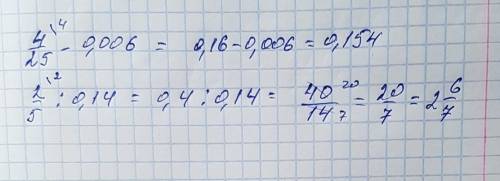 4/25 \4 - 0,006 = 0,16-0,006 = 0,154
2/5 \2 : 0,14 = 0,4 : 0,14 = 40 20/14 7 = 20/7 = 2 6/7